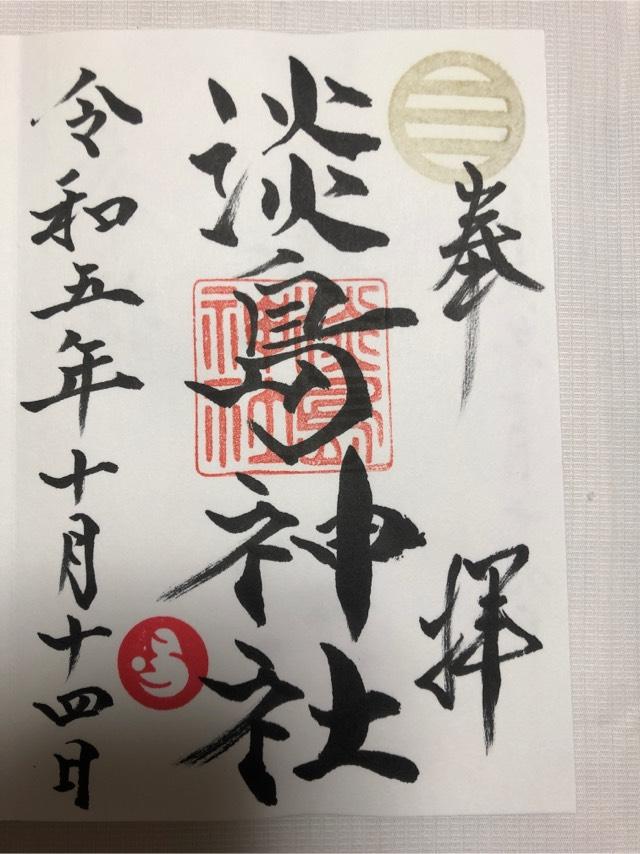 奉拝
淡島神社
淡島神社
令和五年十月十四日